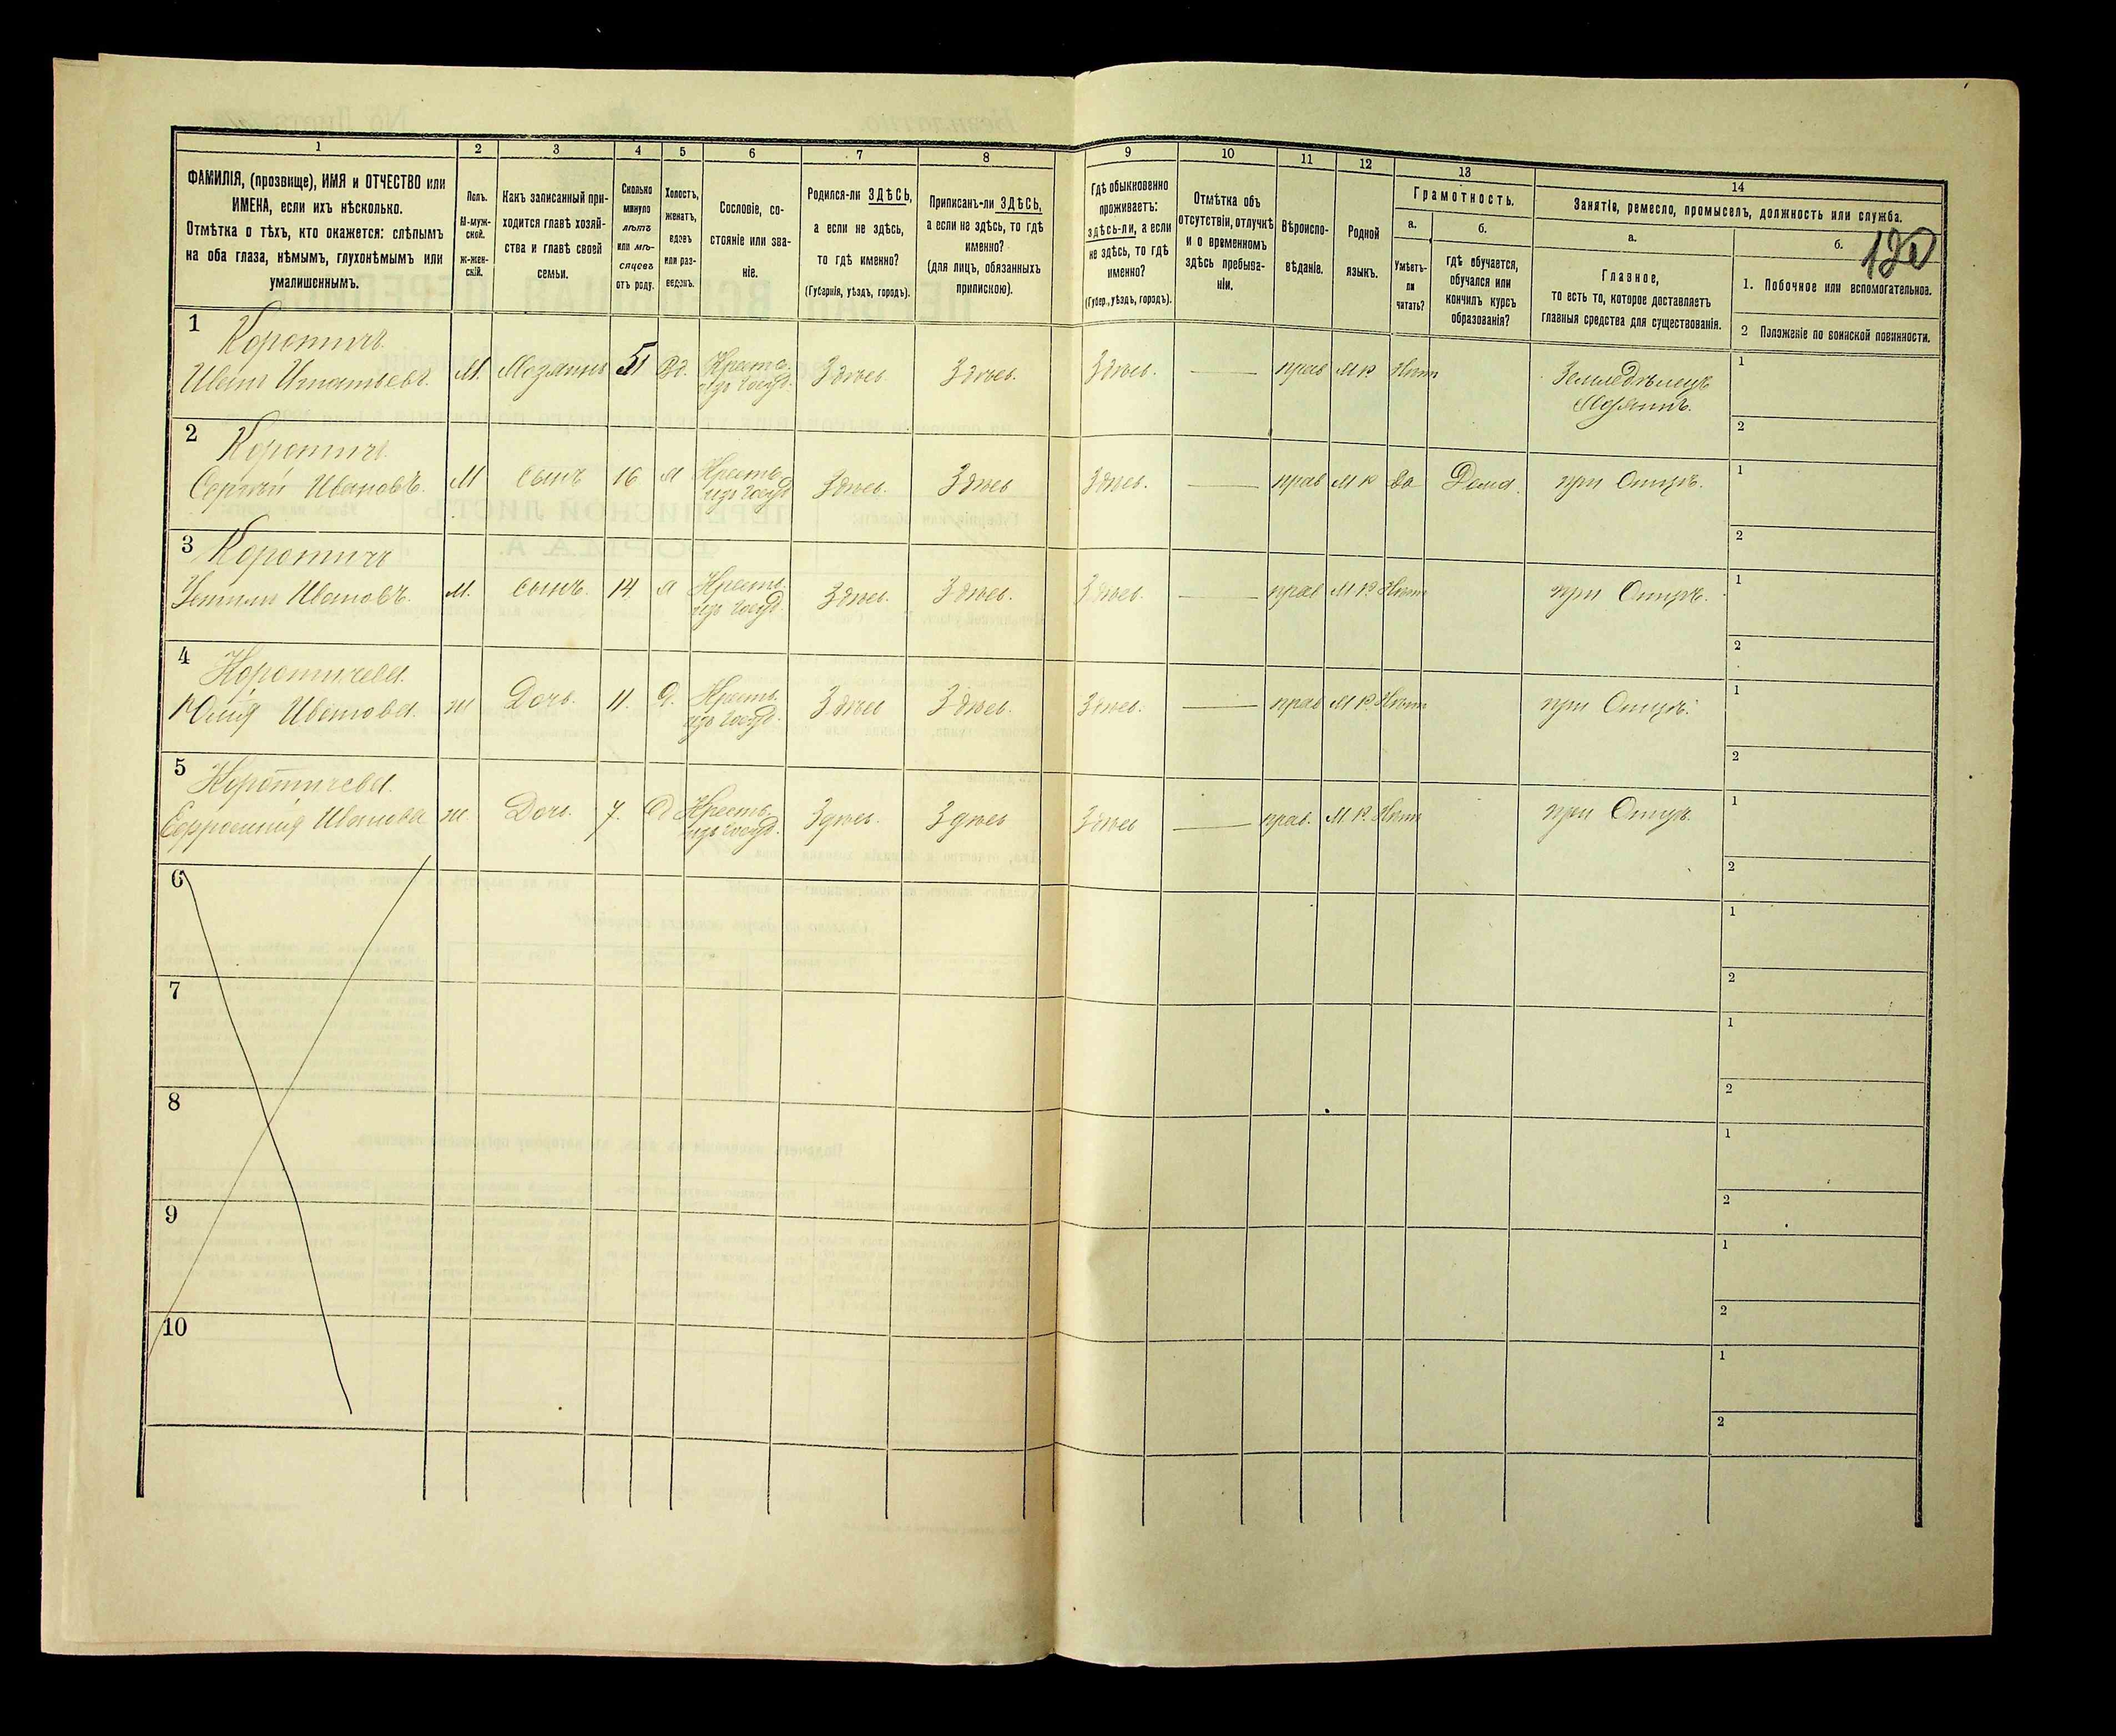 1
2
3
4
5
6
7
8
9
10
11
12
13
14
ФАМИЛІЯ, (прозвище), ИМЯ и ОТЧЕСТВО или
ИМЕНА, если ихъ нѣсколько.
Отмѣтка о тѣхъ, кто окажется: слѣпымъ
на оба глаза, нѣмымъ, глухонѣмымъ или
умалишеннымъ.
Полъ.
М-муж-
ской.
ж-жен-
скій.
Какъ записанный при-
ходится главѣ хозяй-
ства и главѣ своей
семьи.
Сколько
минуло
лѣтъ
или мѣ-
сяцевъ
отъ роду.
Холостъ,
женатъ,
вдовъ
или раз-
веденъ.
Сословіе, со-
стояніе или зва-
ніе.
Родился-ли ЗДѢСЬ,
а если не здѣсь,
то гдѣ именно?
(Губернія, уѣздъ, городъ).
Приписанъ-ли ЗДѢСЬ,
а если не здѣсь, то гдѣ
именно?
(для лицъ, обязанныхъ
припискою).
Гдѣ обыкновенно
проживаетъ:
здѣсь-ли, а если
не здѣсь, то гдѣ
именно?
(Губер., уѣздъ, городъ).
Отмѣтка объ
отсутствіи, отлучкѣ
и о временномъ
здѣсь пребыва-
ніи.
Вѣроиспо-
вѣданіе.
Родной
языкъ.
Грамотность.
а.
Умѣетъ-
ли
читать?
б.
гдѣ обучается,
обучался или
кончилъ курсъ
образованія?
Занятіе, ремесло, промыселъ, должность или служба.
а.
Главное,
то есть то, которое доставляетъ
главныя средства для существованія.
б.
1. Побочное или вспомогательное.
2 Положеніе по воинской повинности.
1 Коротичъ
Иванъ Игнатьевъ. М. Хозяинъ 51 Вд. Кресть
изъ госуд. Здѣсь Здѣсь. Здѣсь. — прав М Р Нѣтъ Земледѣлецъ
Хозяинъ. 1
2
2 Коротичъ
Сергѣй Ивановъ. М сынъ 16 Х Кресть.
изъ госуд Здѣсь. Здѣсь Здѣсь. — прав М Р Да Дома. при Отцѣ. 1
2
3 Коротичъ
Ивановъ. М. сынъ. 14 Х Кресть.
изъ госуд. Здѣсь. Здѣсь. Здѣсь — прав М Р Нѣтъ при Отцѣ. 1
2
4 Коротичева
Юлія Иванова ж Дочь. 11. Д. Кресть.
изъ госуд. Здѣсь Здѣсь. Здѣсь. — прав М Р. Нѣтъ при Отцѣ. 1
2
5 Коротичева
Ефросинія Иванова ж Дочь. 7. Д Кресть.
изъ госуд. Здѣсь. Здѣсь Здѣсь — прав. М. Р. Нѣтъ при Отцѣ. 1
2
6
1
2
7
1
2
8
1
2
9
1
2
10
1
2